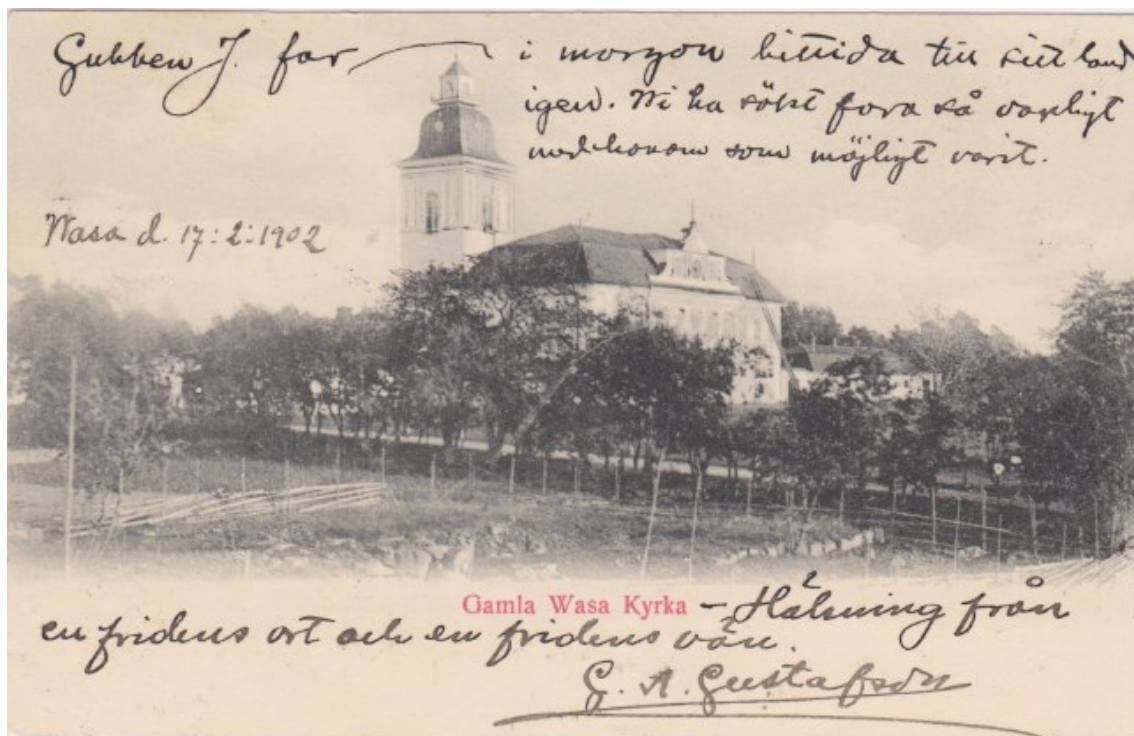 Gubben J. far — i morgon bittida till sitt land
igen. Wi ha sökt fora så varligt
med honom som möjligt varit.
Wasa d. 17:2:1902
Gamla Wasa Kyrka – Hälsning från
en fridens ort och en fridens vän.
G. A. Gustafson